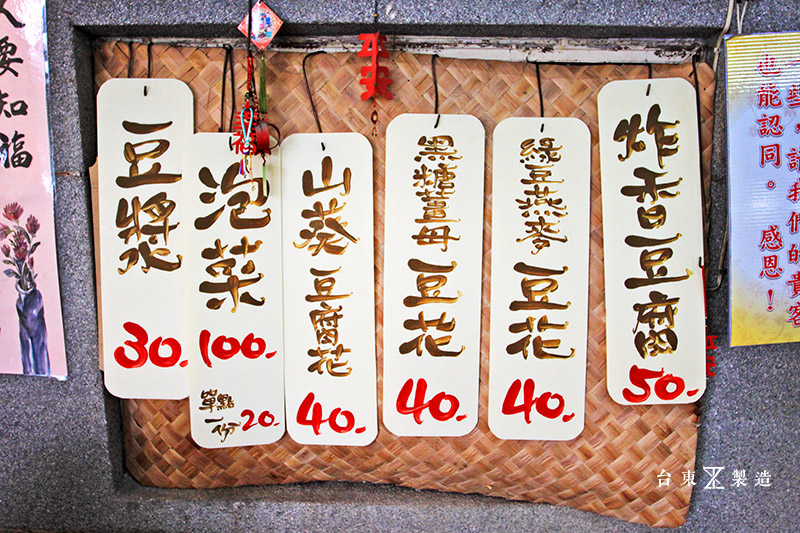 人要知福
平安
福
豆漿
30.
泡菜
100.
單點一份20.
山葵豆腐花
40.
黑糖薑母豆花
40.
綠豆燕麥豆花
40.
炸香豆腐
50.
讓我們的貴客
也能認同。感恩！
台東製造